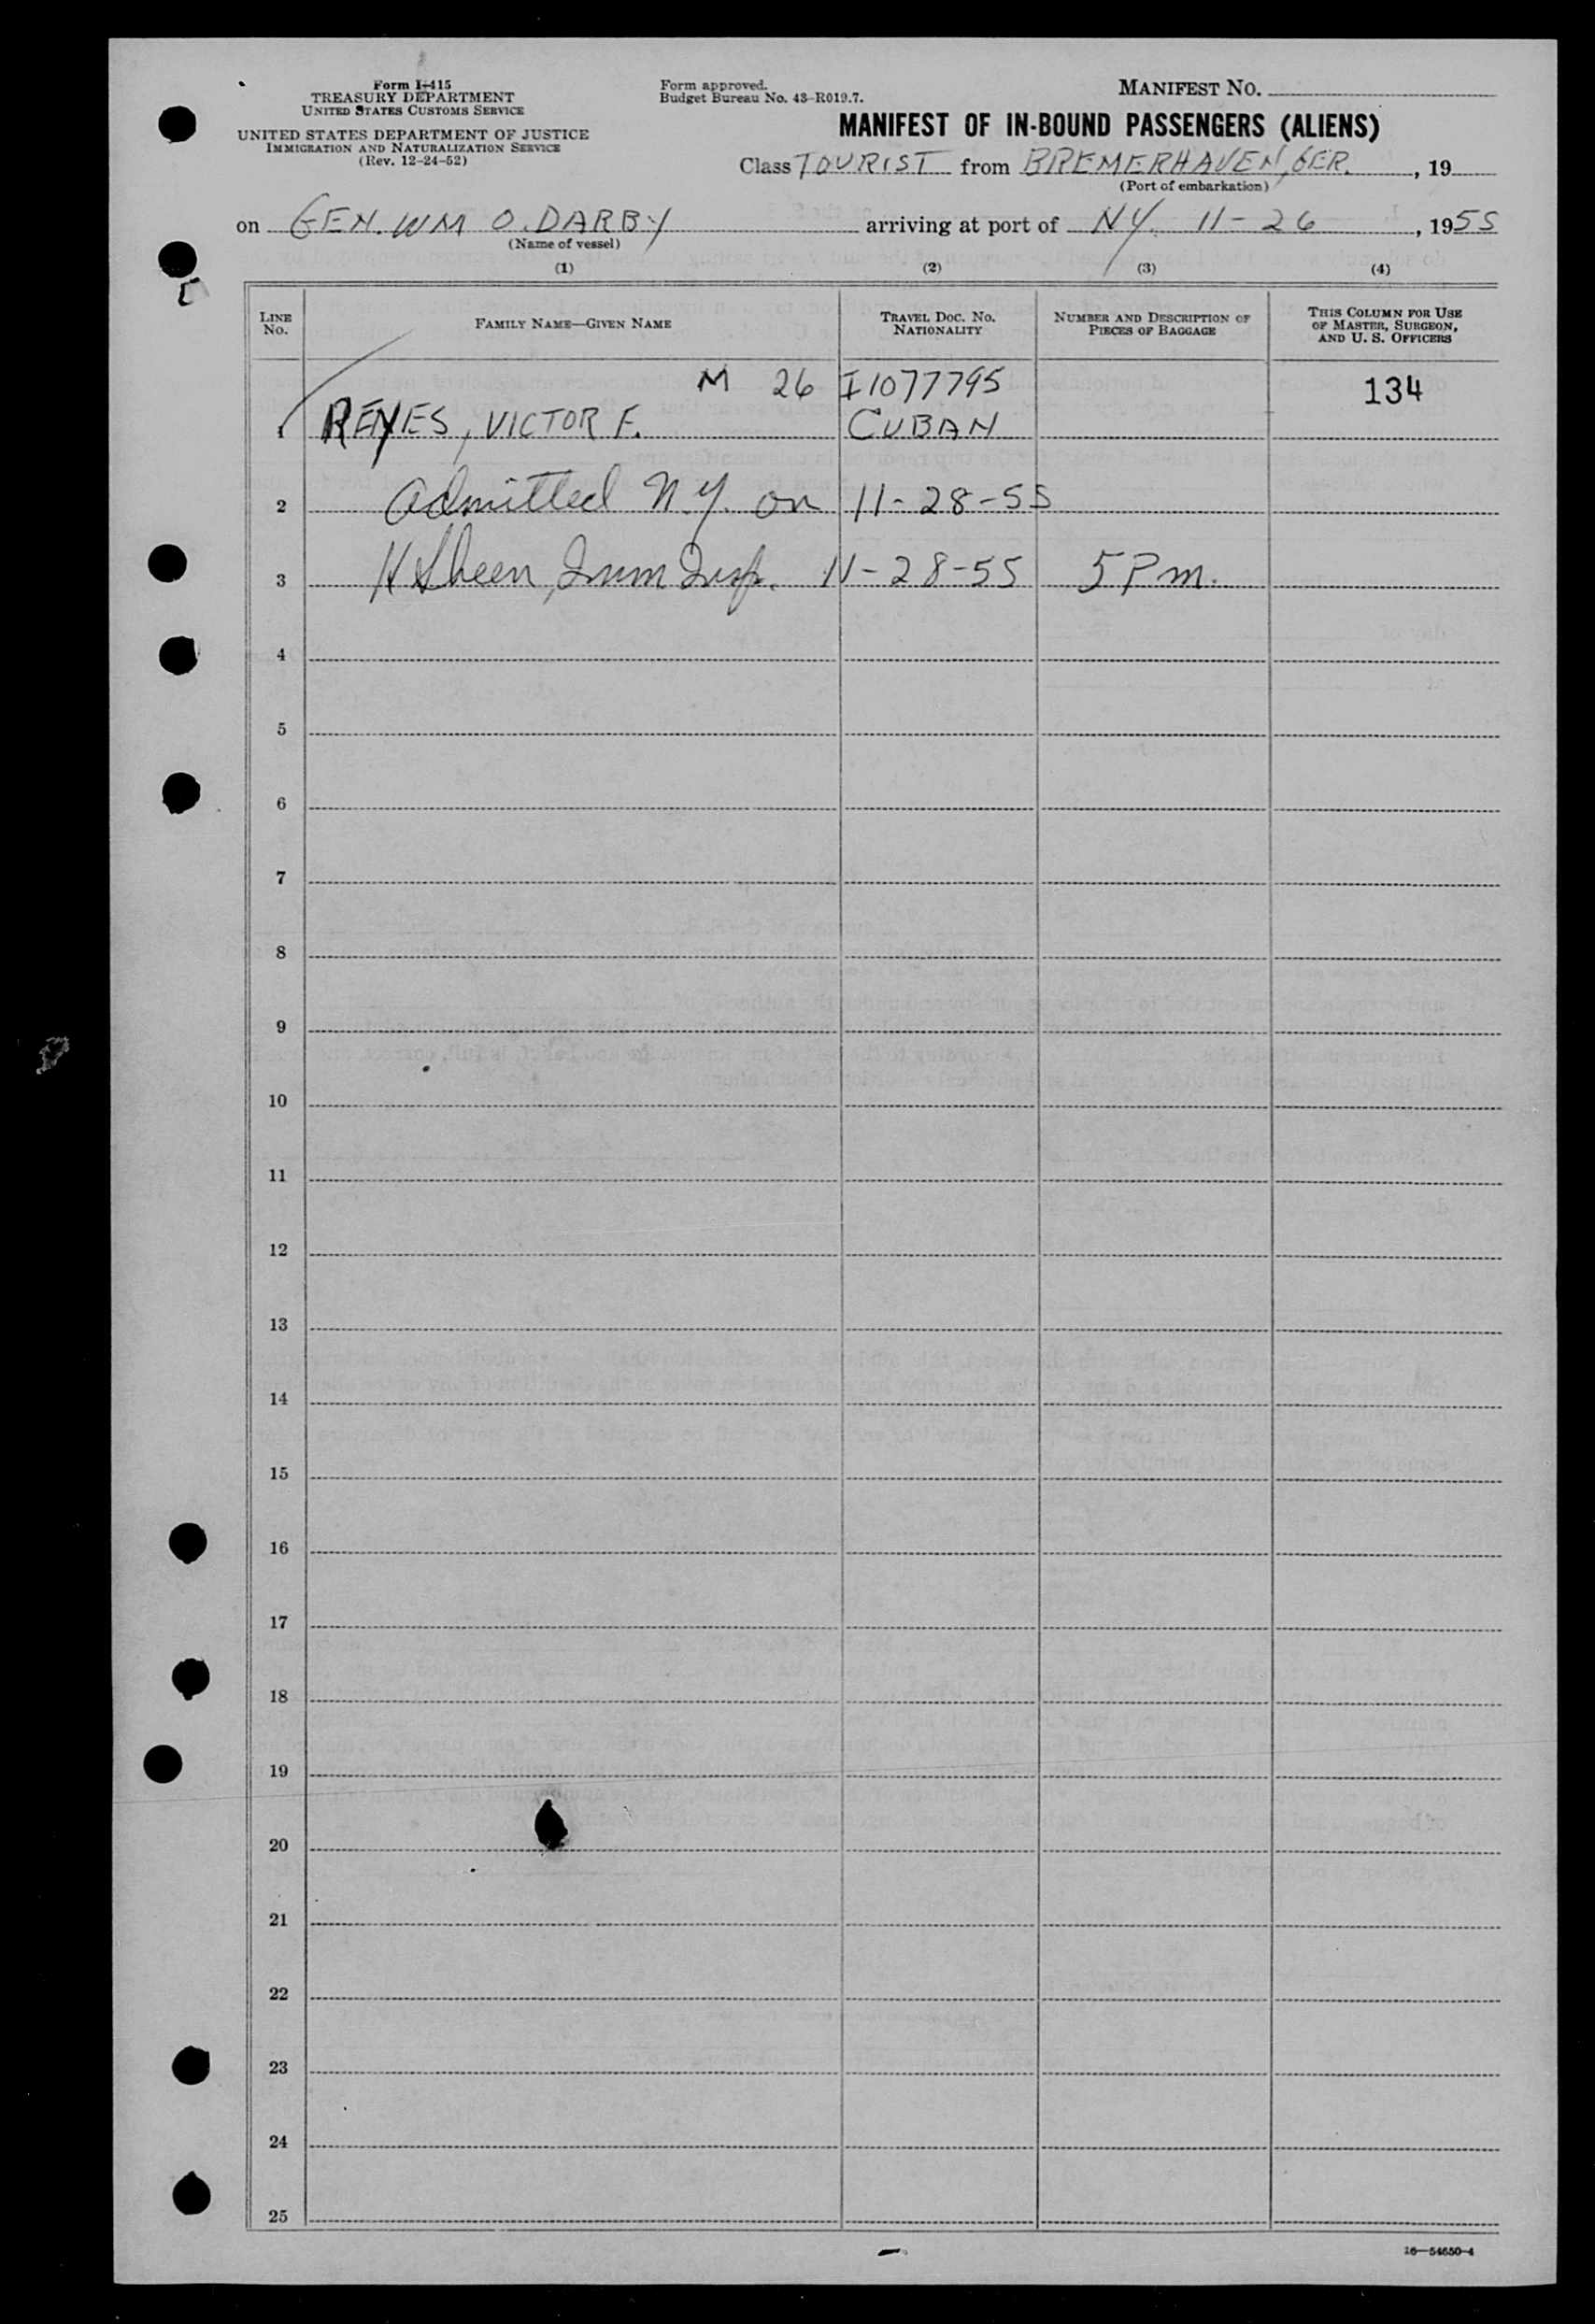 Form I-415
TREASURY DEPARTMENT
UNITED STATES CUSTOMS SERVICE
UNITED STATES DEPARTMENT OF JUSTICE
IMMIGRATION AND NATURALIZATION SERVICE
(Rev. 12-24-52)
Form approved.
Budget Bureau No. 43-R019.7.
MANIFEST NO.
MANIFEST OF IN-BOUND PASSENGERS (ALIENS)
Class TOURIST from BREMERHAVEN, GER. , 19
(Port of embarkation)
on GEN. WM O. DARBY arriving at port of NY. 11-26 , 1955
(Name of vessel)
(1) (2) (3) (4)
LINE NO. FAMILY NAME—GIVEN NAME TRAVEL DOC. NO. NATIONALITY NUMBER AND DESCRIPTION OF PIECES OF BAGGAGE THIS COLUMN FOR USE OF MASTER, SURGEON, AND U. S. OFFICERS
M 26 I1077795 134
1 REYES, VICTOR F. CUBAN
2 Admitted N.Y. on 11-28-55
3 Sheen, Imm Insp. 11-28-55 5 Pm.
4
5
6
7
8
9
10
11
12
13
14
15
16
17
18
19
20
21
22
23
24
25
16—54650-4